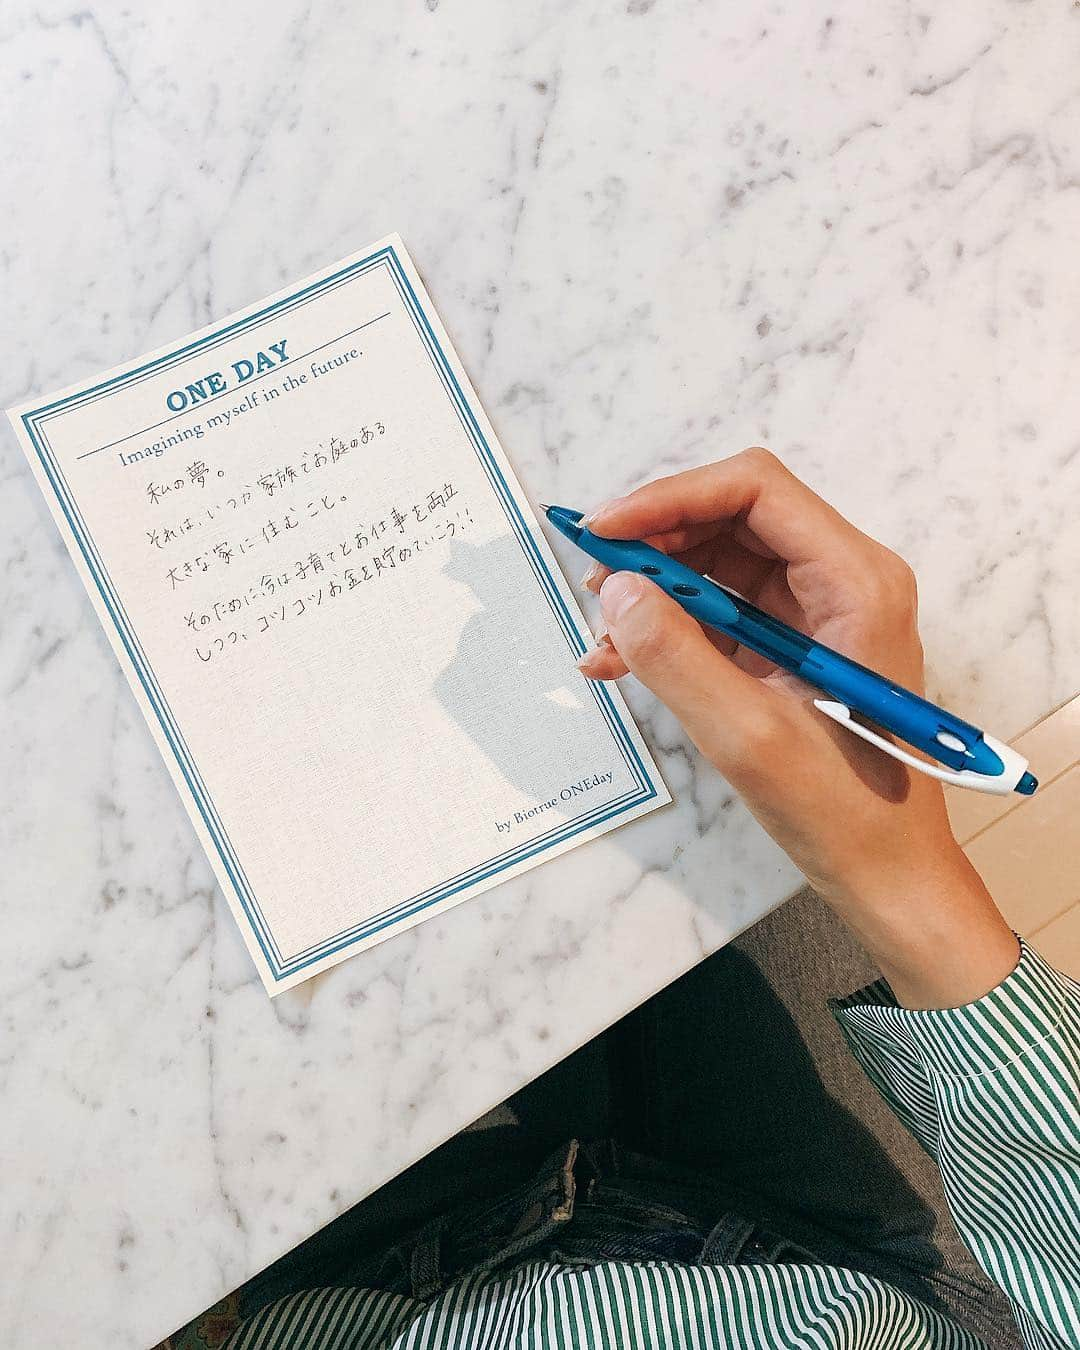 ONE DAY
Imagining myself in the future.
私の夢。
それは、いつか家族でお庭のある
大きな家に住むこと。
そのために今は子育てとお仕事を両立
しつつ、コツコツお金を貯めていこう!!
by Biotrue ONEday